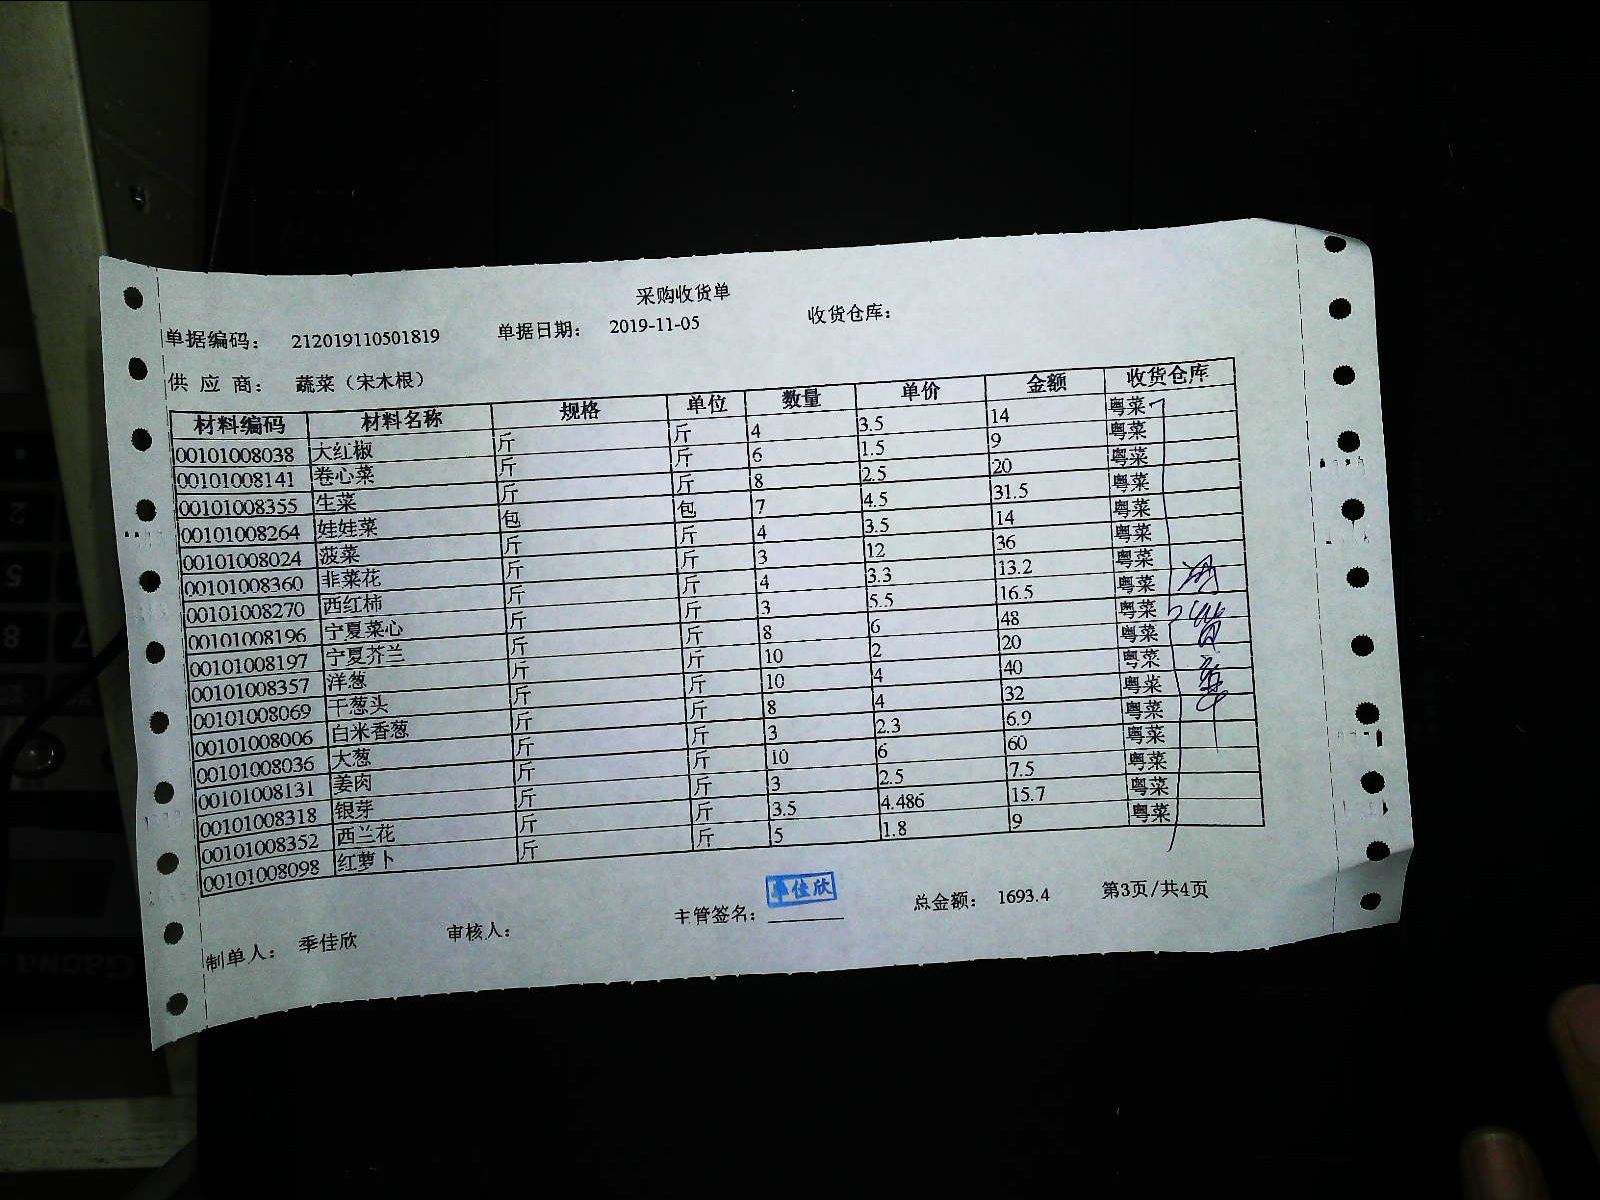 采购收货单
单据编码: 212019110501819 单据日期: 2019-11-05 收货仓库:
供 应 商: 蔬菜（宋木根）
材料编码 材料名称 规格 单位 数量 单价 金额 收货仓库
00101008038 大红椒 斤 斤 4 3.5 14 粤菜
00101008141 卷心菜 斤 斤 6 1.5 9 粤菜
00101008355 生菜 斤 斤 8 2.5 20 粤菜
00101008264 娃娃菜 包 包 7 4.5 31.5 粤菜
00101008024 菠菜 斤 斤 4 3.5 14 粤菜
00101008360 韭菜花 斤 斤 3 12 36 粤菜
00101008270 西红柿 斤 斤 4 3.3 13.2 粤菜
00101008196 宁夏菜心 斤 斤 3 5.5 16.5 粤菜
00101008197 宁夏芥兰 斤 斤 8 6 48 粤菜
00101008357 洋葱 斤 斤 10 2 20 粤菜
00101008069 干葱头 斤 斤 10 4 40 粤菜
00101008006 白米香葱 斤 斤 8 4 32 粤菜
00101008036 大葱 斤 斤 3 2.3 6.9 粤菜
00101008131 姜肉 斤 斤 10 6 60 粤菜
00101008318 银芽 斤 斤 3 2.5 7.5 粤菜
00101008352 西兰花 斤 斤 3.5 4.486 15.7 粤菜
00101008098 红萝卜 斤 斤 5 1.8 9 粤菜
制单人: 季佳欣 审核人: 主管签名: 总金额: 1693.4 第3页/共4页